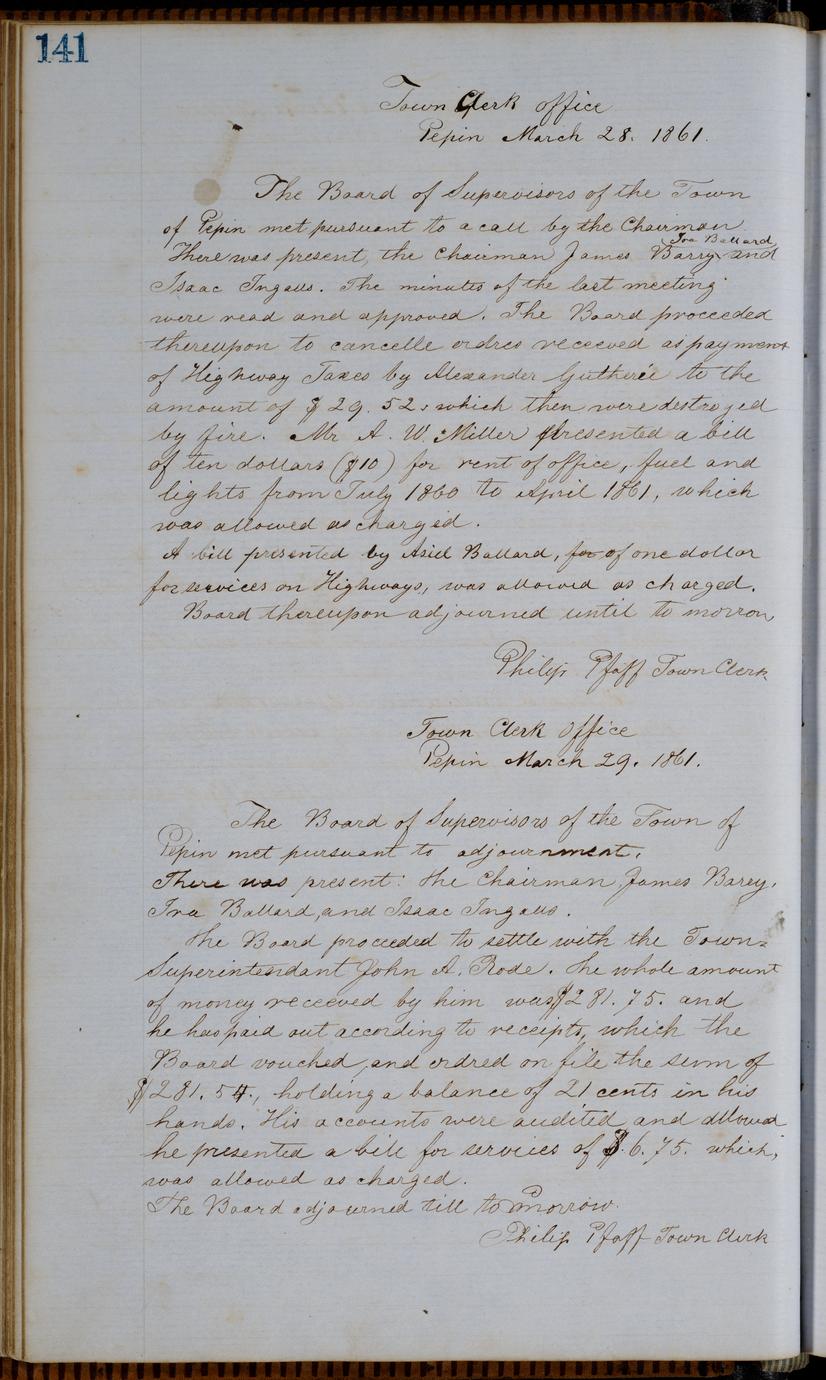 141
Town Clerk office
Pepin March 28. 1861.
The Board of Supervisors of the Town
of Pepin met pursuant to a call by the Chairman
Ira Ballard
There was present, the Chairman James Barry, and
Isaac Ingalls. The minutes of the last meeting
were read and approved. The Board proceeded
thereupon to cancelle ordres receeved as payment
of Highway Taxes by Alexander Gutherie to the
amount of $29.52. which then were destroyed
by fire. Mr A. W. Miller presented a bill
of ten dollars ($10) for rent of office, fuel and
lights from July 1860 to April 1861, which
was allowed as charged.
A bill presented by Asiel Ballard, for of one dollar
for services on Highways, was allowed as charged.
Board thereupon adjourned until to morrow
Philip Pfaff Town Clerk
Town Clerk office
Pepin March 29. 1861.
The Board of Supervisors of the Town of
Pepin met pursuant to adjournment.
There was present: the Chairman James Barry,
Ira Ballard, and Isaac Ingalls.
The Board proceeded to settle with the Town=
Superintendant John A. Rode. The whole amount
of money receeved by him was $281.75. and
he has paid out according to receipts, which the
Board vouched, and ordred on file the sum of
$281.54., holding a balance of 21 cents in his
hands. His accounts were audited and allowed
he presented a bill for services of $6.75. which,
was allowed as charged.
The Board adjourned till to morrow.
Philip Pfaff Town Clerk